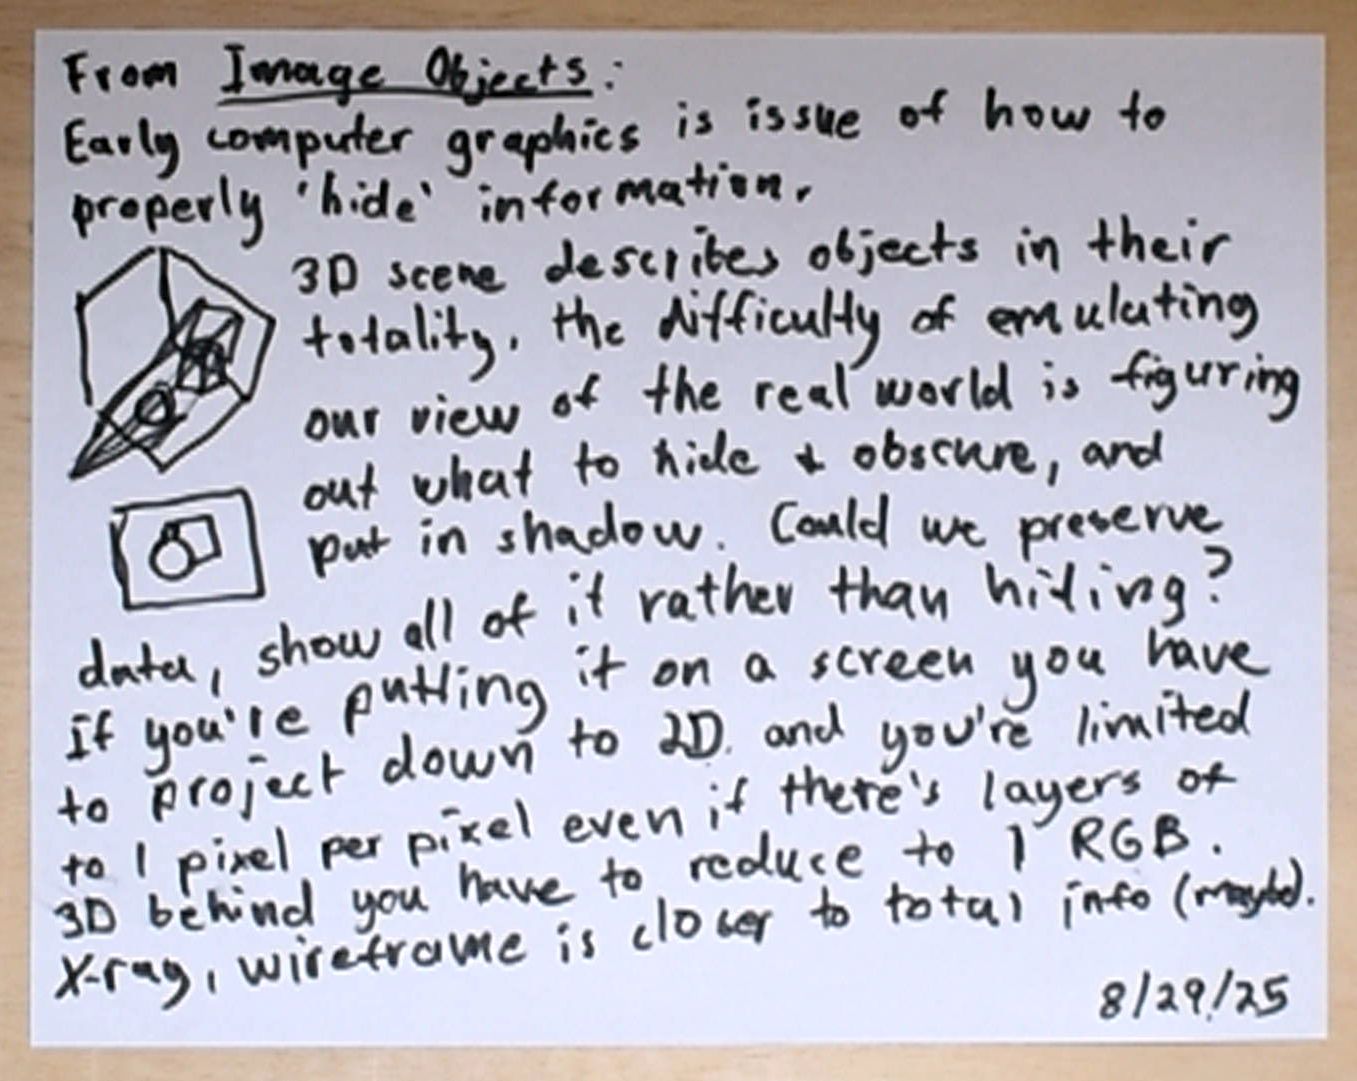 From Image Objects:
Early computer graphics is issue of how to
properly 'hide' information.
3D scene describes objects in their
totality, the difficulty of emulating
our view of the real world is figuring
out what to hide & obscure, and
put in shadow. Could we preserve
data, show all of it rather than hiding?
If you're putting it on a screen you have
to project down to 2D. and you're limited
to 1 pixel per pixel even if there's layers of
3D behind you have to reduce to 1 RGB.
X-ray, wireframe is closer to total info (maybe).
8/29/25